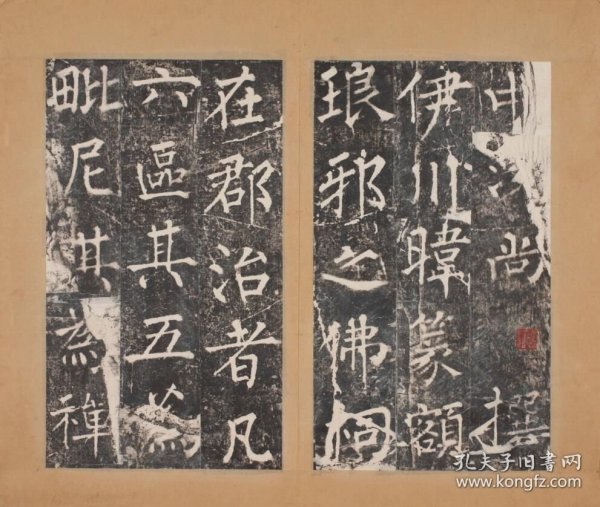 尚 撰
伊川暐篆額
琅邪之佛祠
在郡治者凡
六區其五為
毗尼其為禪
孔夫子旧书网
www.kongfz.com